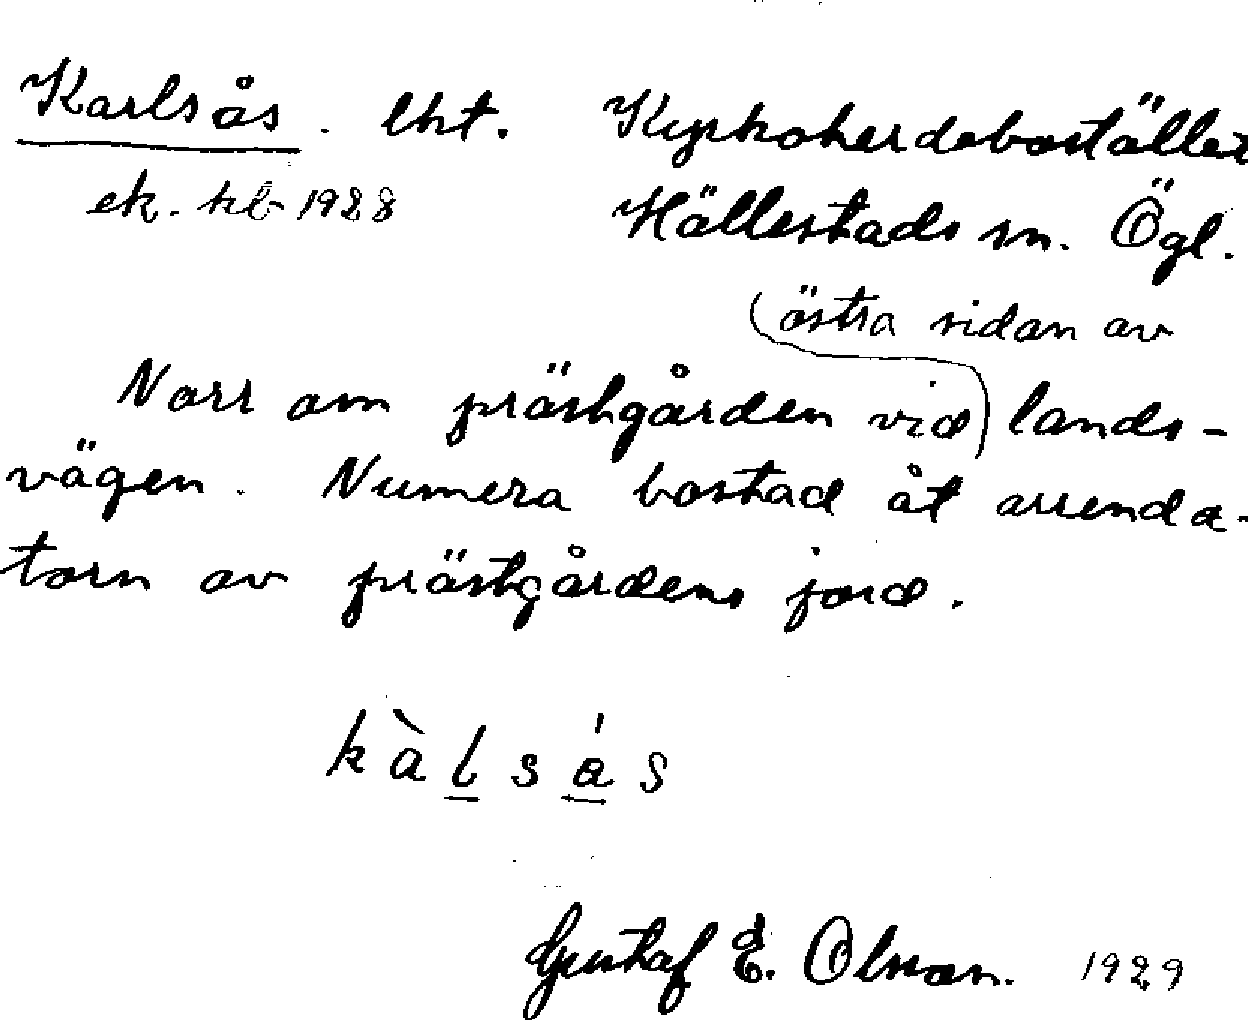 Karlsås. lht. Kyrkoherdebostället
ek. kb 1928 Hällestads sn. Ögl.
(östra sidan av
Norr om prästgården vid) lands-
vägen. Numera bostad åt arrenda-
torn av prästgårdens jord.
kàlsás
Gustaf E. Olsson. 1929